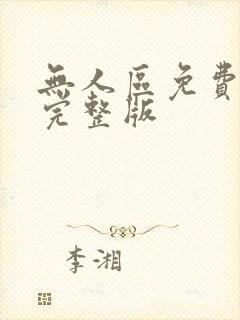 無人區免費
完整版
李湘